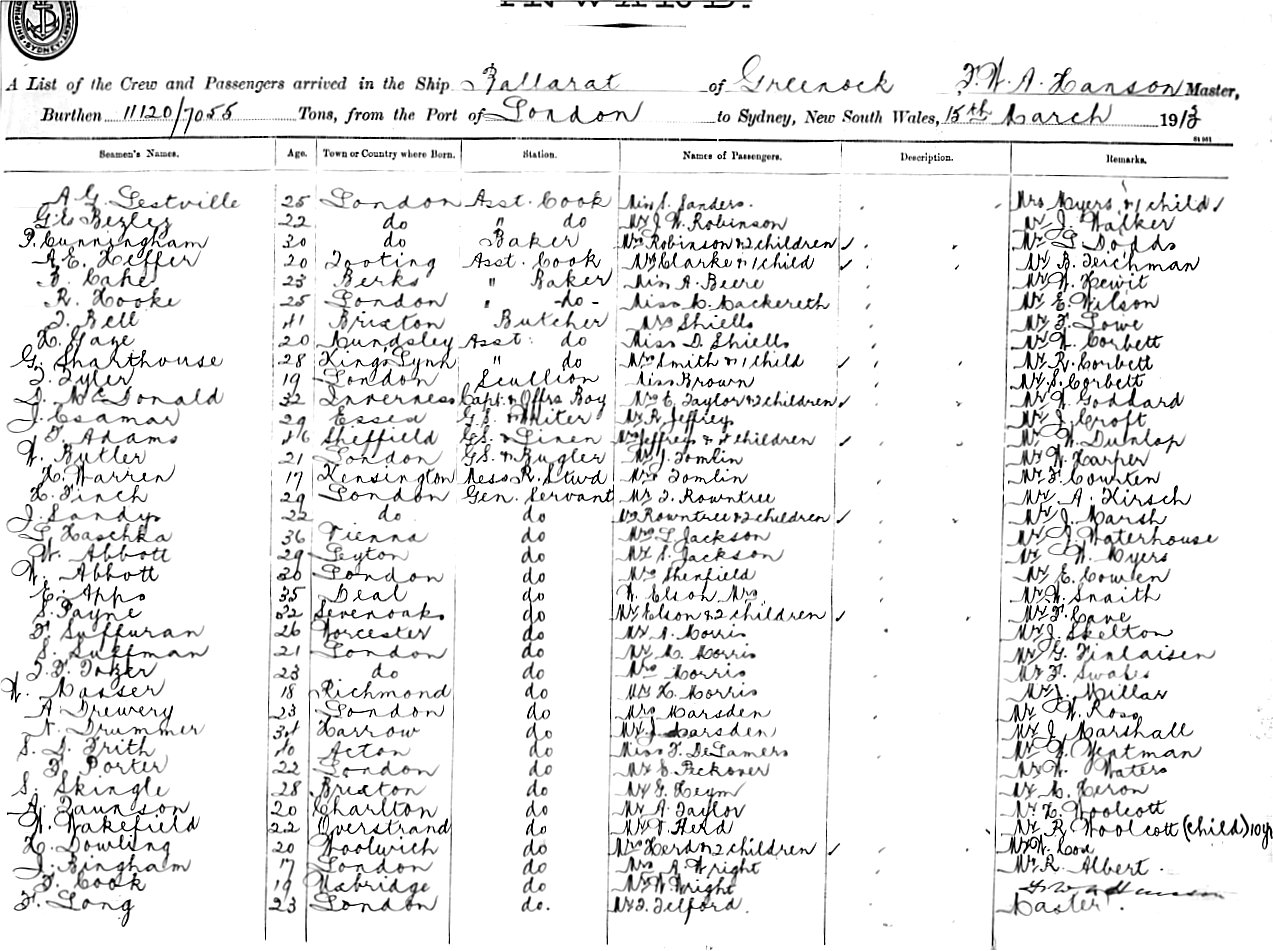 INWARD.
SHIPPING SYDNEY
A List of the Crew and Passengers arrived in the Ship Ballarat of Greenock F. W. A. Hanson Master,
Burthen 11120/7055 Tons, from the Port of London to Sydney, New South Wales, 15th March 1913
Seamen's Names. Age. Town or Country where Born. Station. Names of Passengers. Description. Remarks.
A G Lestville 25 London Asst. Cook Miss S. Sanders. Mrs Myers, & 1 child
G. C Bezley 22 do " do Mr J. W. Robinson Mr J. Walker
P. Cunningham 30 do Baker Mrs Robinson & 2 children ✓ Mr L Dodds
A. E. Heffer 20 Tooting Asst. Cook Mrs Clarke & 1 child ✓ Mr B. Teichman
Cake 23 Berks " Baker Miss A. Beere Mr W. Hewit
R. Hooke 25 London " -do- Miss Mackereth Mr E. Wilson
T. Bell 41 Brixton Butcher Mrs Shiells Mr F. Lowe
H. Gaze 20 Mundsley Asst. do Miss D. Shiells Mr Corbett
G. Sharthouse 28 King's Lynn " do Mrs Smith & 1 child ✓ Mr R. Corbett
Tyler 19 London Scullion Miss Brown Mr S. Corbett
D. McDonald 32 Inverness Capt. & Offrs Boy Mrs E. Taylor & 2 children ✓ Mr Goddard
J. Esamar 29 Essex G.S. & Writer Mr R. Jeffrey Mr J. Croft
F. Adams 46 Sheffield G.S. & Linen Mrs Jeffrey & 4 children ✓ Mr W. Dunlop
W. Butler 21 London G.S. & Bugler Mr J. Tomlin Mr W. Harper
H. Warren 17 Kensington Mess R. Stwd Mrs Tomlin Mr F. Counten
H. Finch 29 London Gen. Servant Mr Rowntree Mr A. Hirsch
J. Sandys 22 do do Mrs Rowntree & 2 children ✓ Mr J. Marsh
Haschka 36 Vienna do Mrs L Jackson Mr J Waterhouse
W. Abbott 29 Leyton do Mr S. Jackson Mr W. Myers
W. Abbott 30 London do Mrs Shenfield Mr E. Cowen
E. Apps 35 Deal do W. Elson Mrs Mr W. Snaith
S. Payne 32 Sevenoaks do Mr Elson & 2 children ✓ Mr F. Cave
F. Suffuran 26 Worcester do Mr A. Morris Mr J. Skelton
S. Sukeman 21 London do Mr M. Morris Mr G. Finlaisen
J. F. Tozer 23 do do Mrs Morris Mr F. Swales
W. Masser 18 Richmond do Mr H. Morris Mr J. Millar
A. Drewery 23 London do Mrs Marsden Mr W. Ross
N. Drummer 34 Harrow do Mr J. Marsden Mr J. Marshall
S. D. Frith 40 Acton do Miss F. DeLamers Mr Yeatman
F. Porter 22 London do Mr S. Peckover Mr W. Waters
S. Skingle 28 Brixton do Mr G. Heym Mr M. Heron
A. Taunson 20 Charlton do Mr A. Taylor Mr H. Woolcott
W. Wakefield 22 Overstrand do Mr Herd Mr R Woolcott (child) 10 yr
H. Dowling 20 Woolwich do Mrs Herd & 2 children ✓ Mr W. Cox
J. Bingham 17 London do Mrs A Wright Mr R. Albert.
F. Cook 19 Uxbridge do Mr W Wright F W A Hanson
F. Long 23 London do. Mr F. Telford. Master.